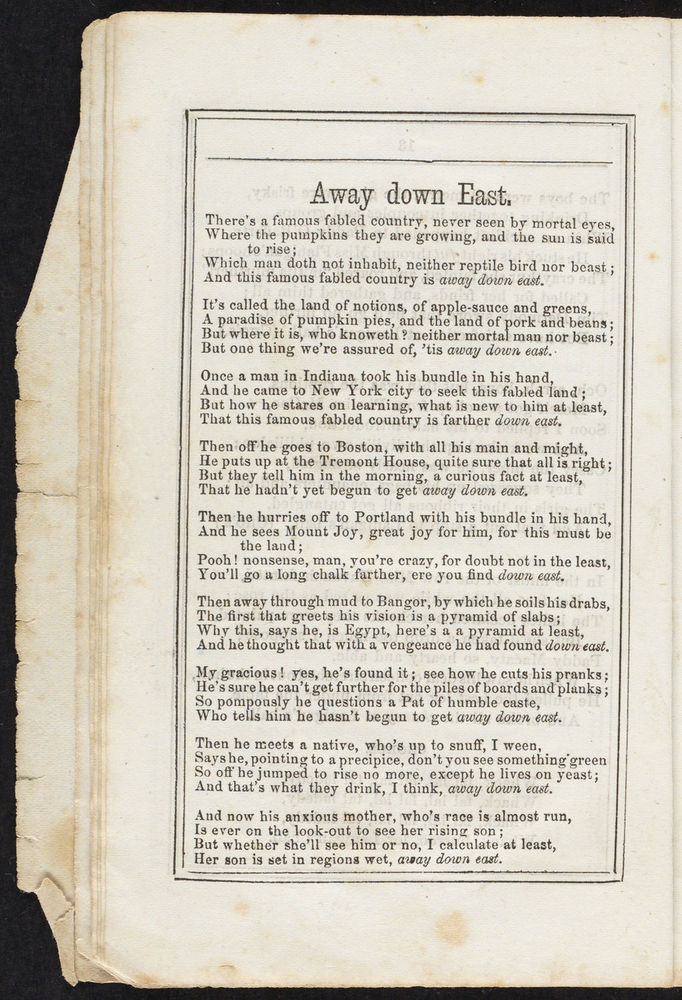 Away down East.
There's a famous fabled country, never seen by mortal eyes,
Where the pumpkins they are growing, and the sun is said
to rise;
Which man doth not inhabit, neither reptile bird nor beast;
And this famous fabled country is away down east.
It's called the land of notions, of apple-sauce and greens,
A paradise of pumpkin pies, and the land of pork and beans;
But where it is, who knoweth? neither mortal man nor beast;
But one thing we're assured of, 'tis away down east.
Once a man in Indiana took his bundle in his hand,
And he came to New York city to seek this fabled land;
But how he stares on learning, what is new to him at least,
That this famous fabled country is farther down east.
Then off he goes to Boston, with all his main and might,
He puts up at the Tremont House, quite sure that all is right;
But they tell him in the morning, a curious fact at least,
That he hadn't yet begun to get away down east.
Then he hurries off to Portland with his bundle in his hand,
And he sees Mount Joy, great joy for him, for this must be
the land;
Pooh! nonsense, man, you're crazy, for doubt not in the least,
You'll go a long chalk farther, ere you find down east.
Then away through mud to Bangor, by which he soils his drabs,
The first that greets his vision is a pyramid of slabs;
Why this, says he, is Egypt, here's a a pyramid at least,
And he thought that with a vengeance he had found down east.
My gracious! yes, he's found it; see how he cuts his pranks;
He's sure he can't get further for the piles of boards and planks;
So pompously he questions a Pat of humble caste,
Who tells him he hasn't begun to get away down east.
Then he meets a native, who's up to snuff, I ween,
Says he, pointing to a precipice, don't you see something green
So off he jumped to rise no more, except he lives on yeast;
And that's what they drink, I think, away down east.
And now his anxious mother, who's race is almost run,
Is ever on the look-out to see her rising son;
But whether she'll see him or no, I calculate at least,
Her son is set in regions wet, away down east.